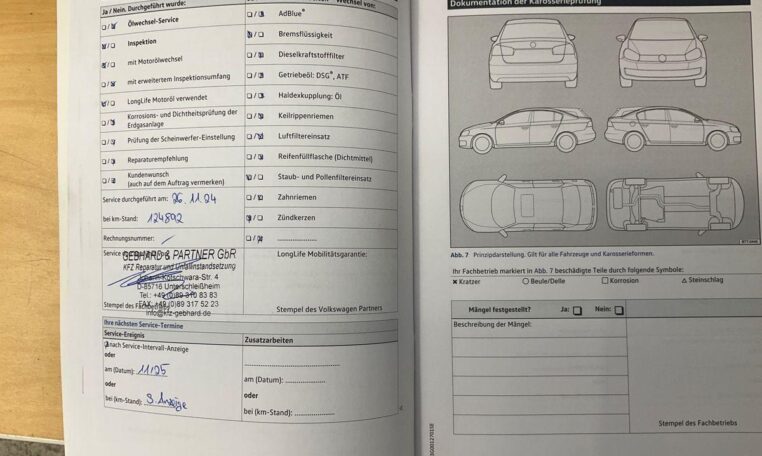 Ja / Nein. Durchgeführt wurde:
Ölwechsel-Service
Inspektion
mit Motorölwechsel
mit erweitertem Inspektionsumfang
LongLife Motoröl verwendet
Korrosions- und Dichtheitsprüfung der
Erdgasanlage
Prüfung der Scheinwerfer-Einstellung
Reparaturempfehlung
Kundenwunsch
(auch auf dem Auftrag vermerken)
Service durchgeführt am: 26.11.24
bei km-Stand: 124802
Rechnungsnummer: /
GEBHARD & PARTNER GbR
KFZ Reparatur und Unfallinstandsetzung
Kotschwara-Str. 4
D-85716 Unterschleißheim
Tel.: +49 (0)89 310 83 83
FAX: +49 (0)89 317 52 23
info@kfz-gebhard.de
Stempel des
Wechsel von:
AdBlue®
Bremsflüssigkeit
Dieselkraftstofffilter
Getriebeöl: DSG®, ATF
Haldexkupplung: Öl
Keilrippenriemen
Luftfiltereinsatz
Reifenfüllflasche (Dichtmittel)
Staub- und Pollenfiltereinsatz
Zahnriemen
Zündkerzen
....................
LongLife Mobilitätsgarantie:
Stempel des Volkswagen Partners
Ihre nächsten Service-Termine
Service-Ereignis
nach Service-Intervall-Anzeige
oder
am (Datum): 11/25
oder
bei (km-Stand): S. Anzeige
Zusatzarbeiten
am (Datum): ....................
oder
bei (km-Stand): ....................
Dokumentation der Karosserieprüfung
Abb. 7 Prinzipdarstellung. Gilt für alle Fahrzeuge und Karosserieformen.
Ihr Fachbetrieb markiert in Abb. 7 beschädigte Teile durch folgende Symbole:
× Kratzer ○ Beule/Delle □ Korrosion △ Steinschlag
Mängel festgestellt? Ja: □ Nein: □
Beschreibung der Mängel:
Stempel des Fachbetriebs